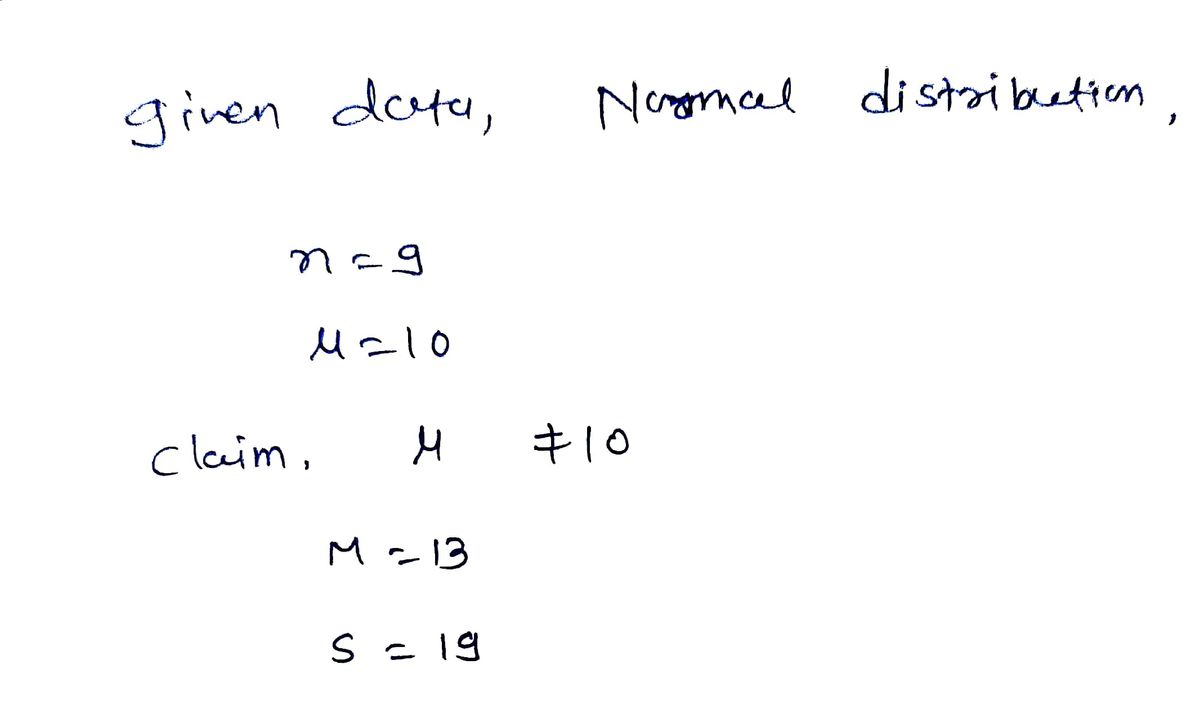 given data, Normal distribution,
n = 9
μ = 10
claim, μ ≠ 10
M = 13
S = 19